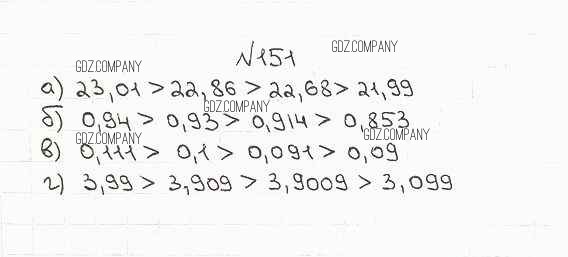 №151
GDZ.COMPANY
GDZ.COMPANY
а) 23,01 > 22,86 > 22,68 > 21,99
GDZ.COMPANY
б) 0,94 > 0,93 > 0,914 > 0,853
GDZ.COMPANY
GDZ.COMPANY
в) 0,111 > 0,1 > 0,091 > 0,09
г) 3,99 > 3,909 > 3,9009 > 3,099